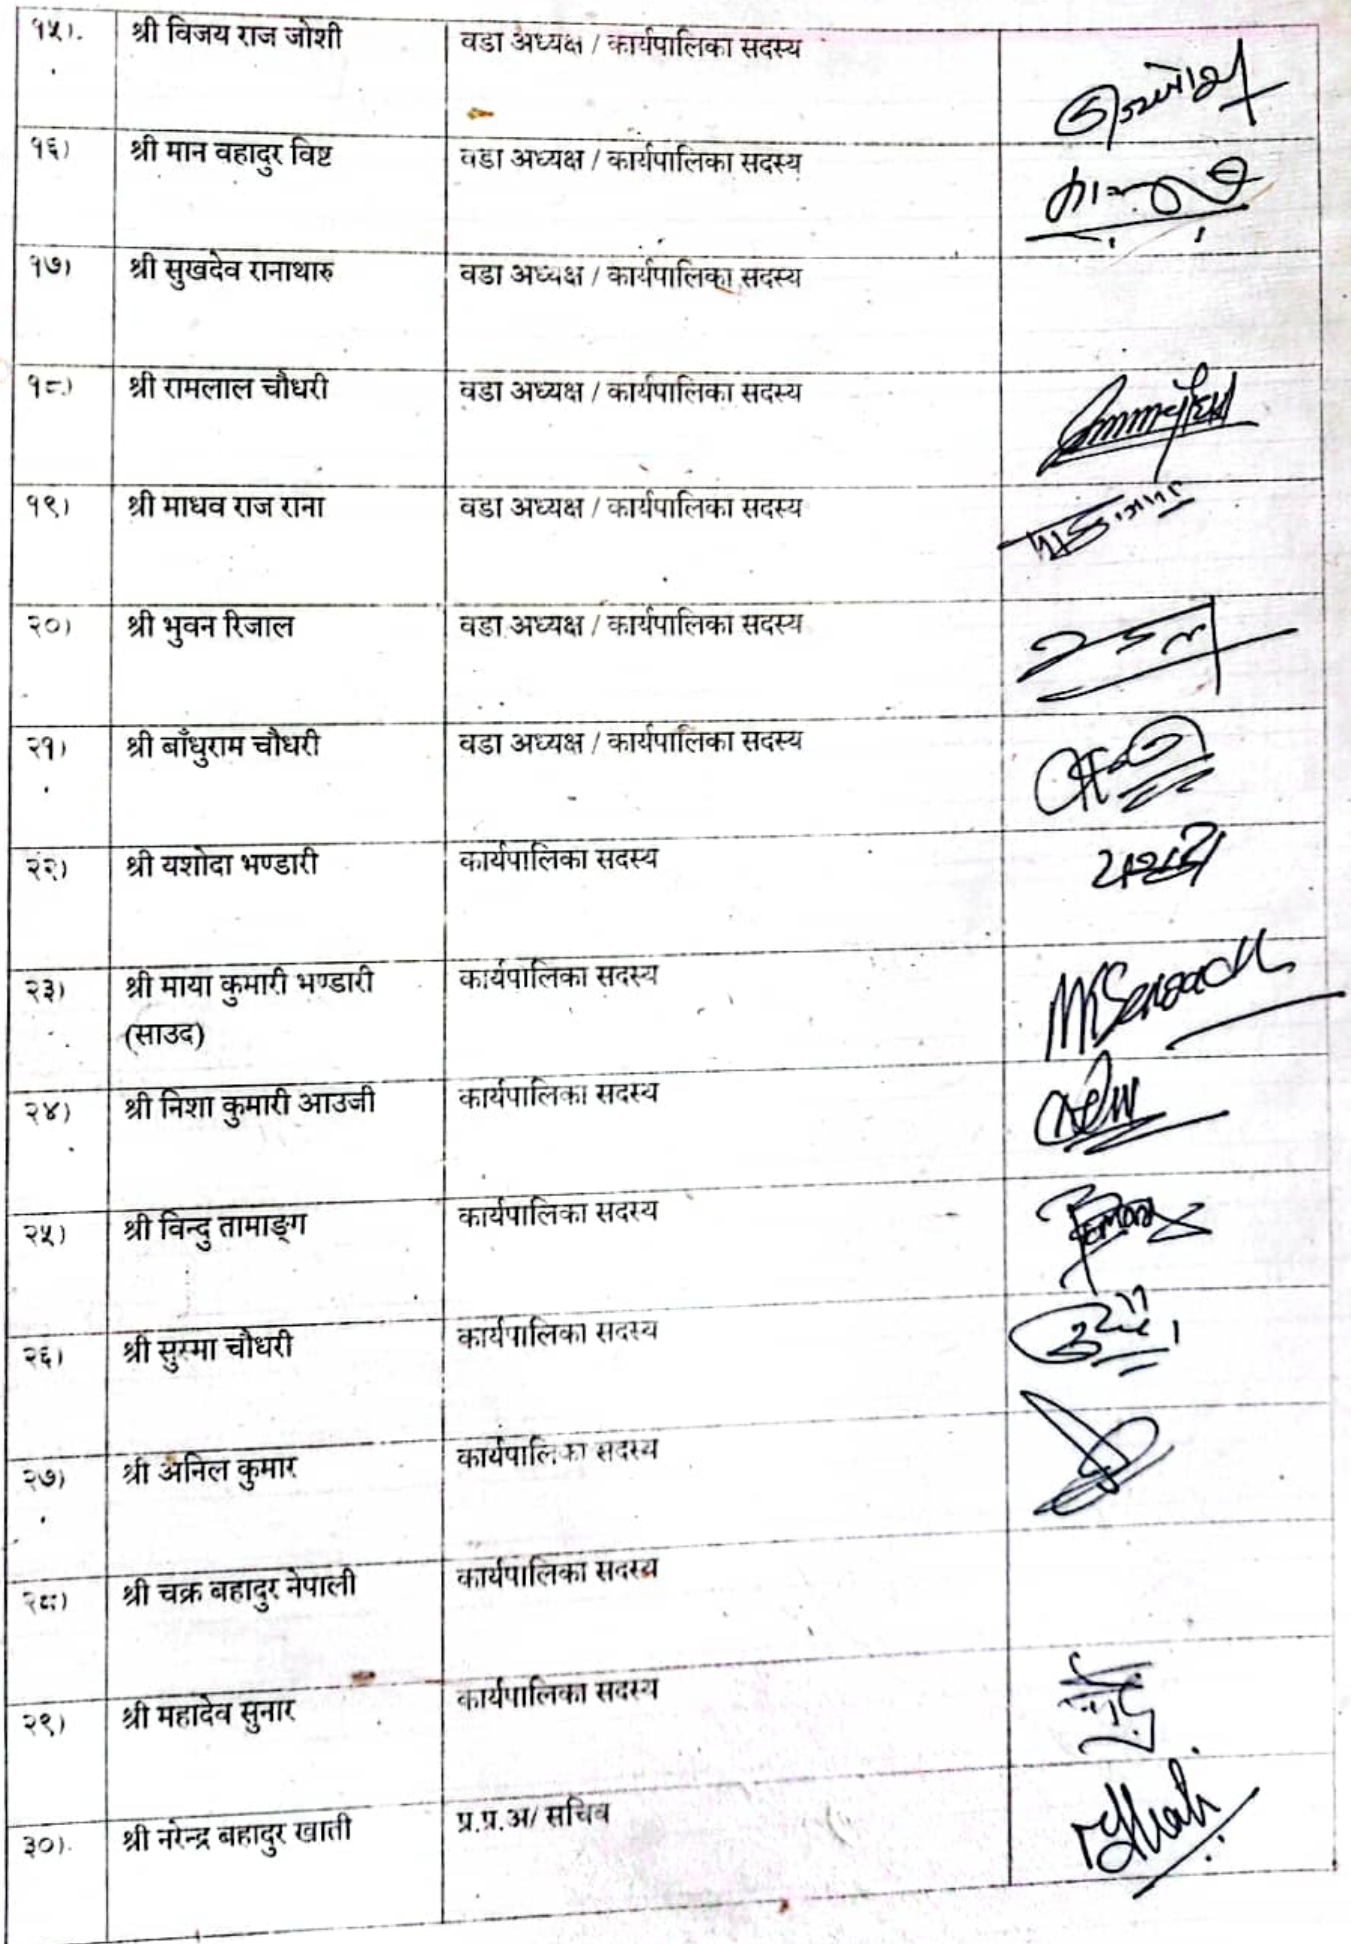 १५). श्री विजय राज जोशी वडा अध्यक्ष / कार्यपालिका सदस्य
१६) श्री मान वहादुर विष्ट वडा अध्यक्ष / कार्यपालिका सदस्य
१७) श्री सुखदेव रानाथारु वडा अध्यक्ष / कार्यपालिका सदस्य
१८) श्री रामलाल चौधरी वडा अध्यक्ष / कार्यपालिका सदस्य
१९) श्री माधव राज राना वडा अध्यक्ष / कार्यपालिका सदस्य
२०) श्री भुवन रिजाल वडा अध्यक्ष / कार्यपालिका सदस्य
२१) श्री बाँधुराम चौधरी वडा अध्यक्ष / कार्यपालिका सदस्य
२२) श्री यशोदा भण्डारी कार्यपालिका सदस्य
२३) श्री माया कुमारी भण्डारी कार्यपालिका सदस्य
(साउद)
२४) श्री निशा कुमारी आउजी कार्यपालिका सदस्य
२५) श्री विन्दु तामाङ्ग कार्यपालिका सदस्य
२६) श्री सुस्मा चौधरी कार्यपालिका सदस्य
२७) श्री अनिल कुमार कार्यपालिका सदस्य
२८) श्री चक्र बहादुर नेपाली कार्यपालिका सदस्य
२९) श्री महादेव सुनार कार्यपालिका सदस्य
३०). श्री नरेन्द्र बहादुर खाती प्र.प्र.अ/ सचिव